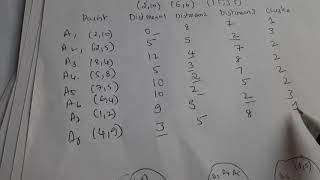 (2,10) (6,6) (1.5,3.5)
Point Distmean1 Distmean2 Distmean3 Cluster
A1 (2,10) 0 8 7 1
A2 (2,5) 5 5 2 3
A3 (8,4) 12 4 7 2
A4 (5,8) 5 3 8 2
A5 (7,5) 10 2 7 2
A6 (6,4) 10 2 5 2
A7 (1,2) 9 9 2 3
A8 (4,9) 3 5 8